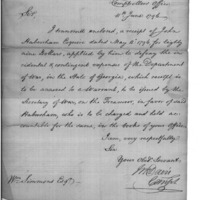 Comptrollers Office
11th June 1796
Sir,
I transmit enclosed, a receipt of John
Habersham Esquire dated May 2d 1796 for Eighty
nine Dollars, applied by him to defray the in-
cidental & contingent expences of the Department
of War, in the State of Georgia, which receipt is
to be assumed to a Warrant, to be issued by the
Secretary of War, on the Treasurer, in favor of said
Habersham, who is to be charged and held ac-
countable for the same, in the books of your office.
I am, very respectfully
Sir
Your Obed. Servant.
Jn Davis
Comptr
Wm Simmons Esqr.